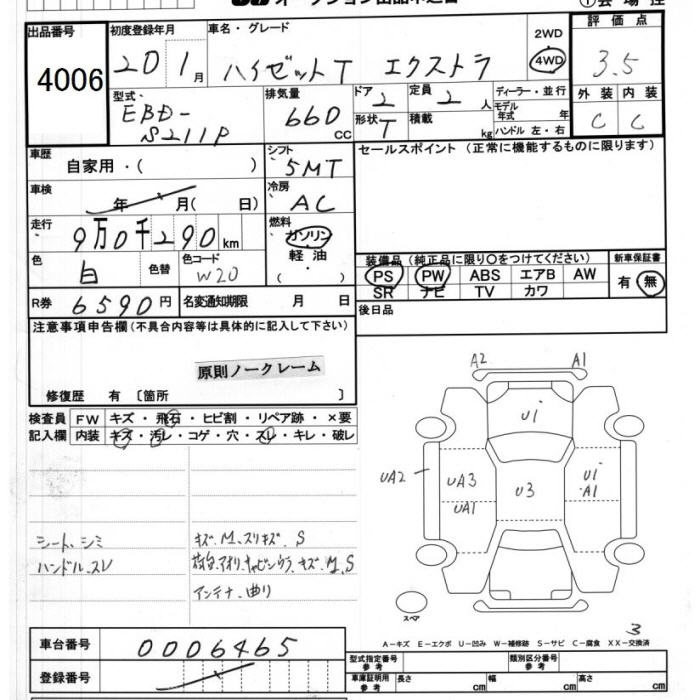 オークション出品申込書
①会場控
出品番号
4006
初度登録年月
20 1月
車名・グレード
ハイゼットT エクストラ
2WD
4WD
評価点
3.5
外装 内装
C C
型式
EBD-
S211P
排気量
660
CC
ドア
2
形状
T
定員
2人
積載
kg
ディーラー・並行
モデル年式 年
ハンドル 左・右
車歴
自家用・( )
シフト
5MT
セールスポイント (正常に機能するものに限ります)
車検
年 月( 日)
冷房
AC
走行
9万0千290km
燃料
ガソリン
軽油
・( )
色
白
色替
色コード
W20
装備品(純正品に限り〇をつけてください)
PS PW ABS エアB AW
SR ナビ TV カワ
新車保証書
有 無
R券 6590円
名変通知期限 月 日
後日品
注意事項申告欄(不具合内容等は具体的に記入して下さい)
原則ノークレーム
修復歴 有〔箇所 〕
検査員記入欄
FW キズ・飛石・ヒビ割・リペア跡・×要
内装 キズ・汚レ・コゲ・穴・スレ・キレ・破レ
シート、シミ
ハンドル、スレ
キズ、M、スリキズ、S
荷台、アオリ、キャビンウラ、キズ、M、S
アンテナ、曲リ
A2 A1
U1
UA2 UA3 U3 U1
A1
UA1
スペア
3
A-キズ E-エクボ U-凹み W-補修跡 S-サビ C-腐食 XX-交換済
車台番号 0006465
登録番号
型式指定番号 参考
類別区分番号 参考
車庫証明用 参考 長さ cm 幅 cm 高さ cm